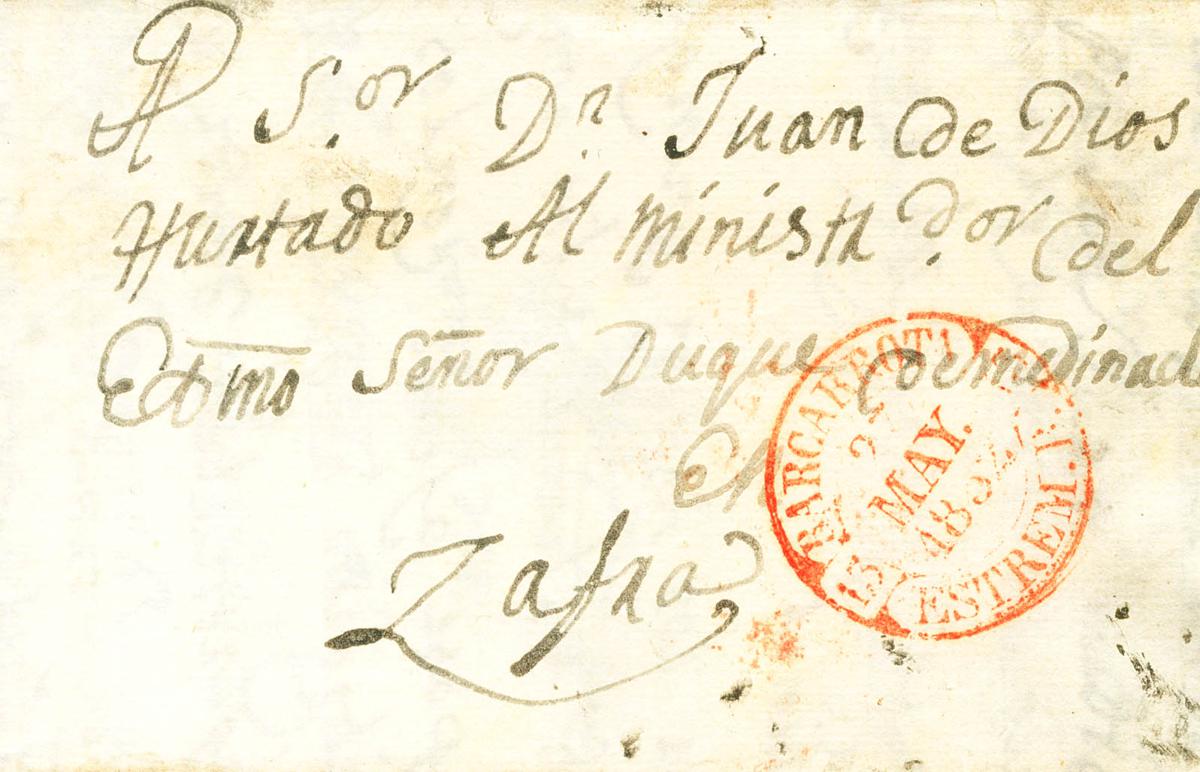 A S.or D.n Juan de Dios
Hurtado Administrd.or del
Exmo Señor Duque de medinacel
En
Zafra
BARCARROTA
MAY.
1852
13
ESTREM. B.